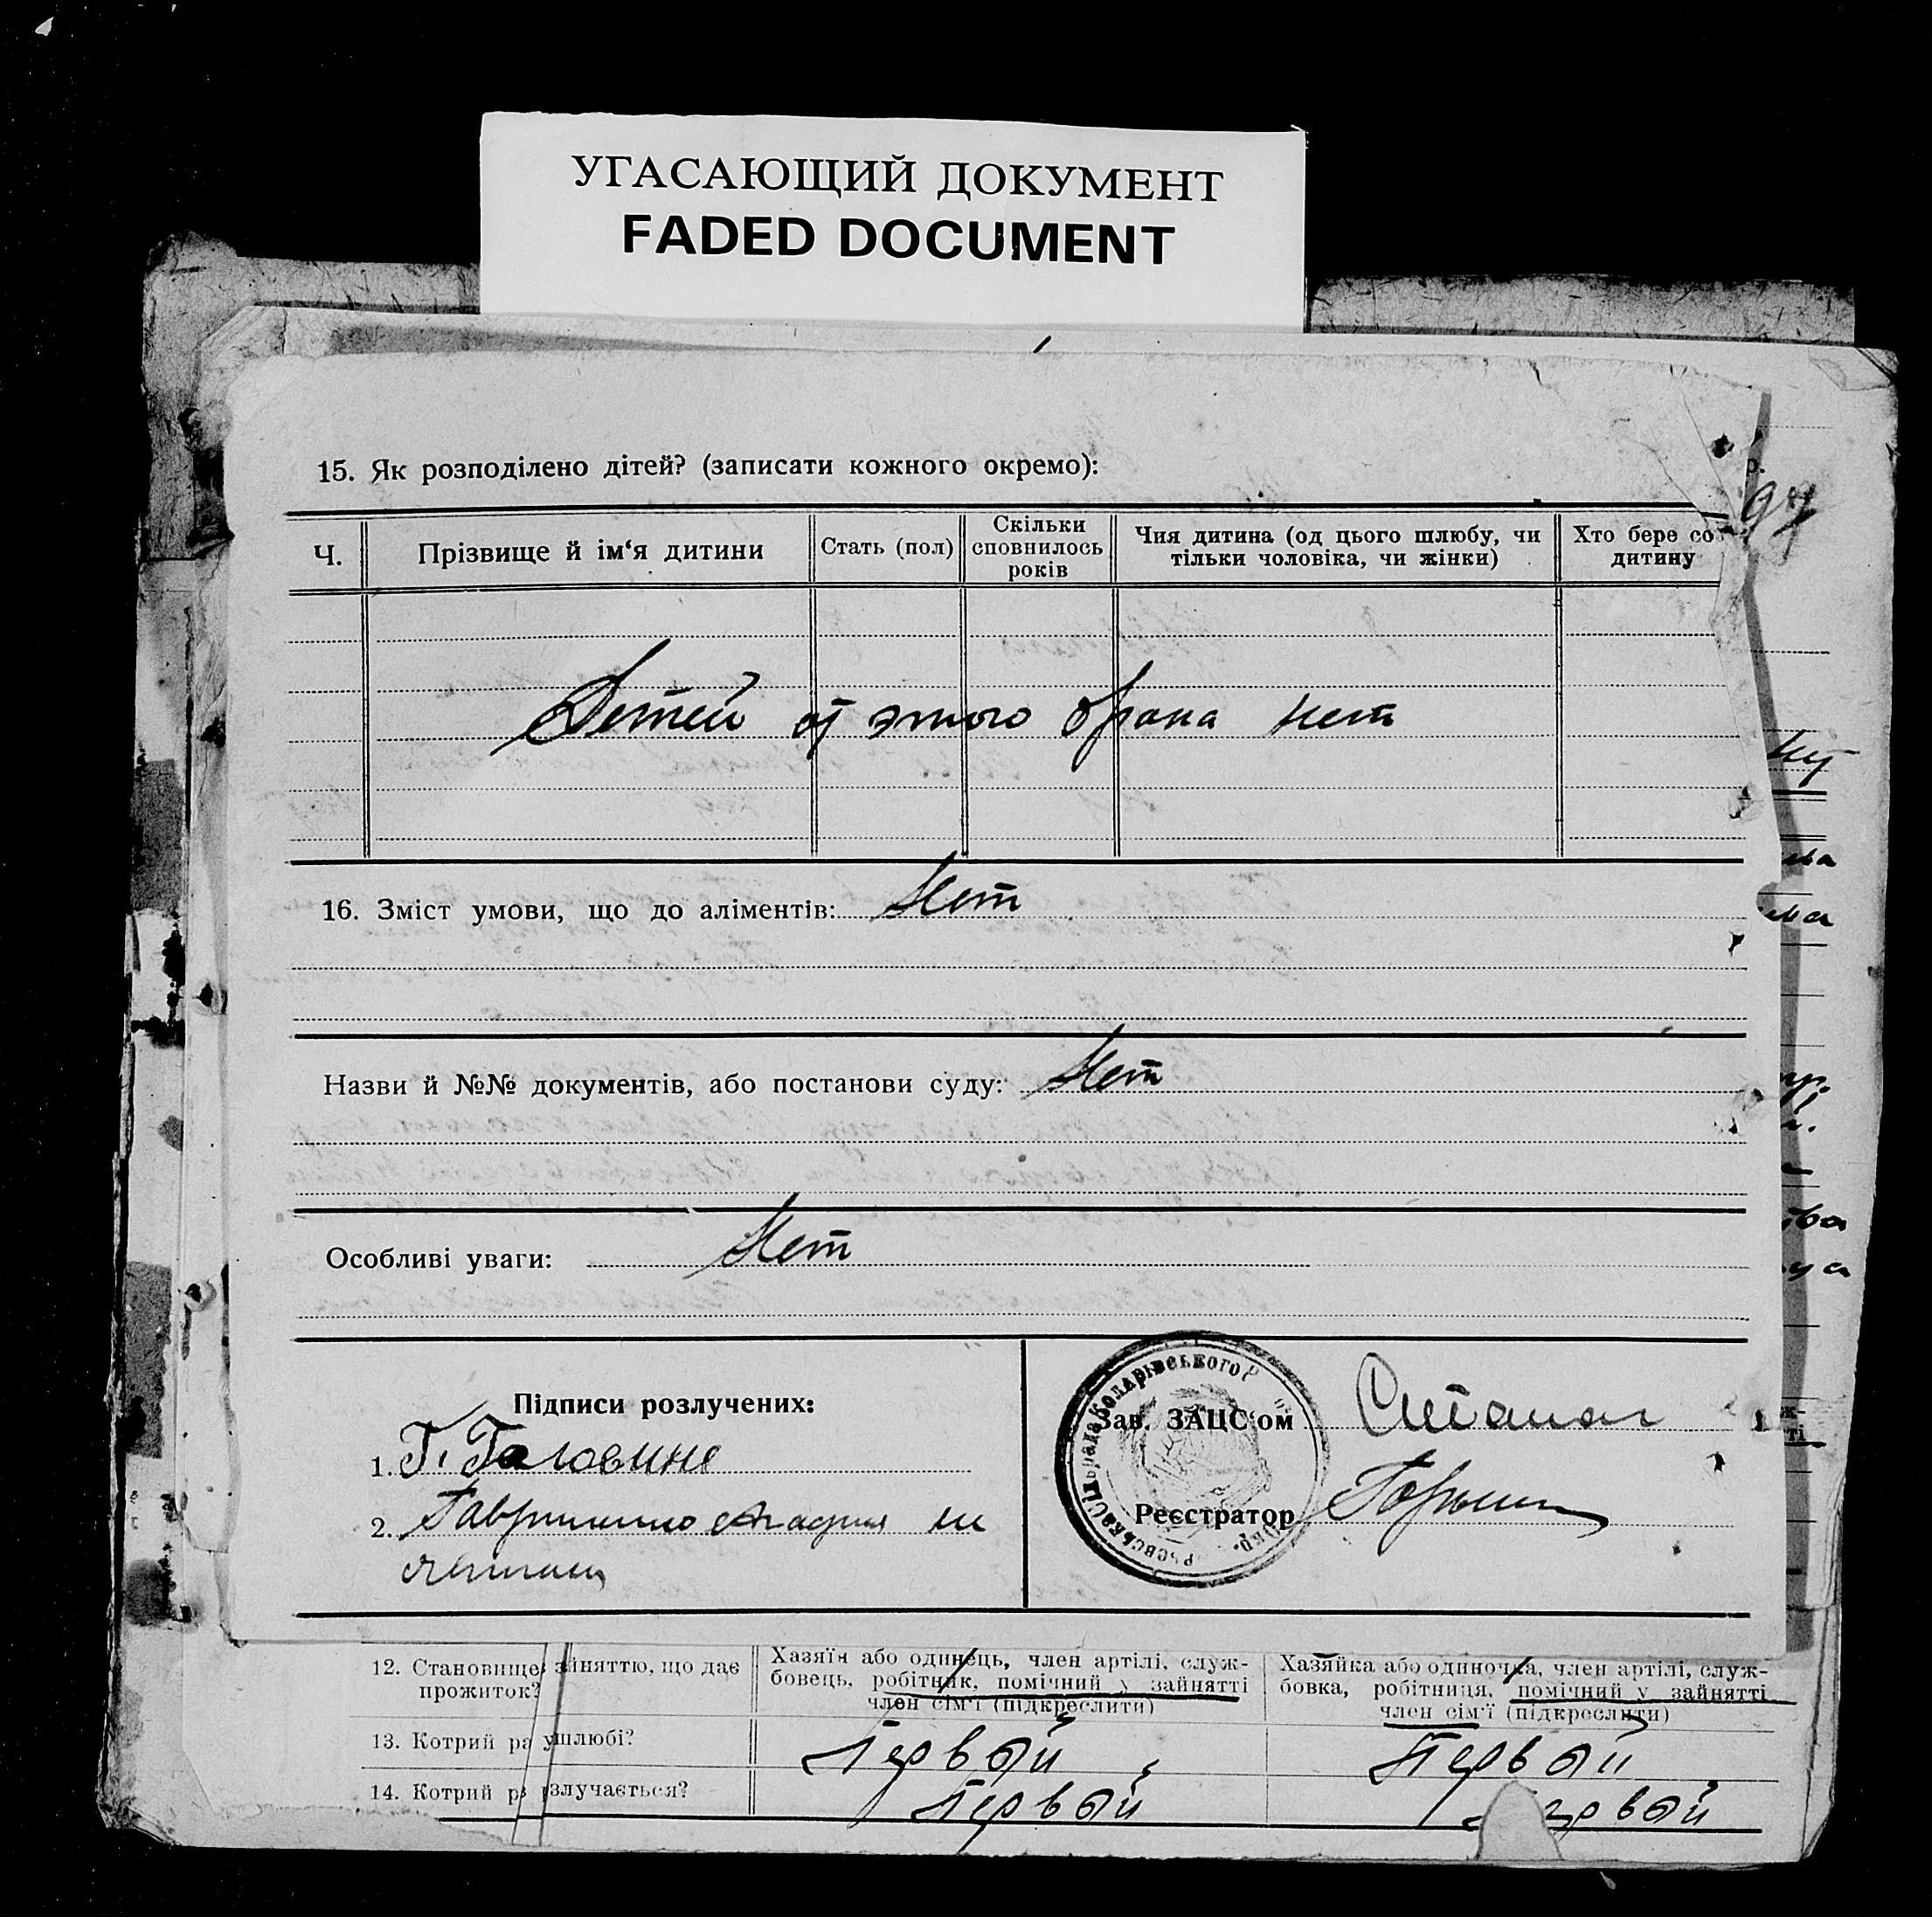 УГАСАЮЩИЙ ДОКУМЕНТ
FADED DOCUMENT
15. Як розподілено дітей? (записати кожного окремо):
97
Ч.
Прізвище й ім‘я дитини
Стать (пол)
Скільки
сповнилось
років
Чия дитина (од цього шлюбу, чи
тільки чоловіка, чи жінки)
Хто бере со
дитину
Детей от этого брака нет
16. Зміст умови, що до аліментів: Нет
Назви й №№ документів, або постанови суду: Нет
Особливі уваги: Нет
Підписи розлучених:
1. Г. Головине
2. не
Зав. ЗАЦС‘ом
Реєстратор
12. Становище зайняттю, що дає
прожиток?
Хазяїн або одинець, член артілі, служ-
бовець, робітник, помічний у зайнятті
член сім‘ї (підкреслити)
Хазяйка або одиночка, член артілі, служ-
бовка, робітниця, помічний у зайнятті
член сім‘ї (підкреслити)
13. Котрий ра у шлюбі?
Первой
Первой
14. Котрий р злучається?
Первой
Первой